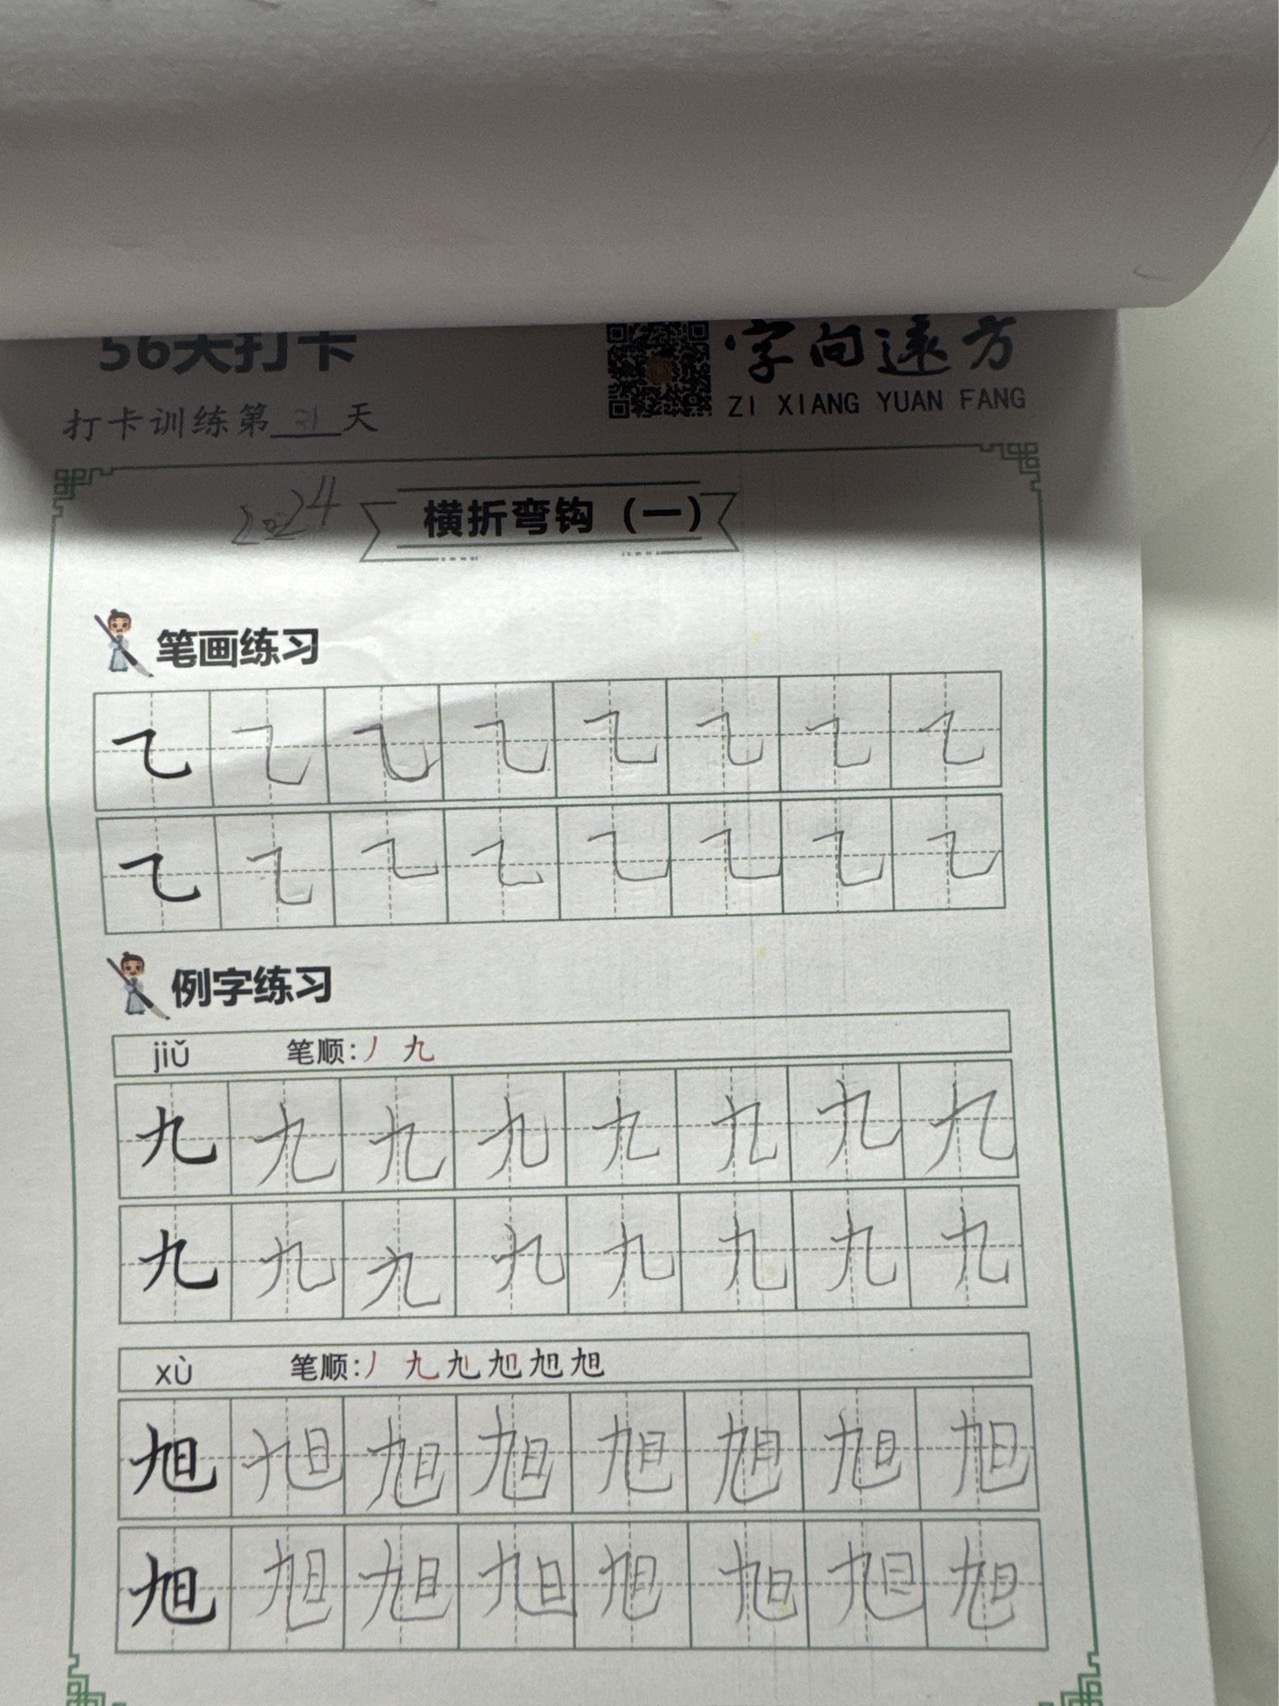 56天打卡
字向远方
ZI XIANG YUAN FANG
打卡训练第31天
横折弯钩（一）
笔画练习
㇈ ㇈ ㇈ ㇈ ㇈ ㇈ ㇈ ㇈
㇈ ㇈ ㇈ ㇈ ㇈ ㇈ ㇈ ㇈
例字练习
jiǔ 笔顺:丿 九
九 九 九 九 九 九 九 九
九 九 九 九 九 九 九 九
xù 笔顺:丿 九 九 旭 旭 旭
旭 旭 旭 旭 旭 旭 旭 旭
旭 旭 旭 旭 旭 旭 旭 旭